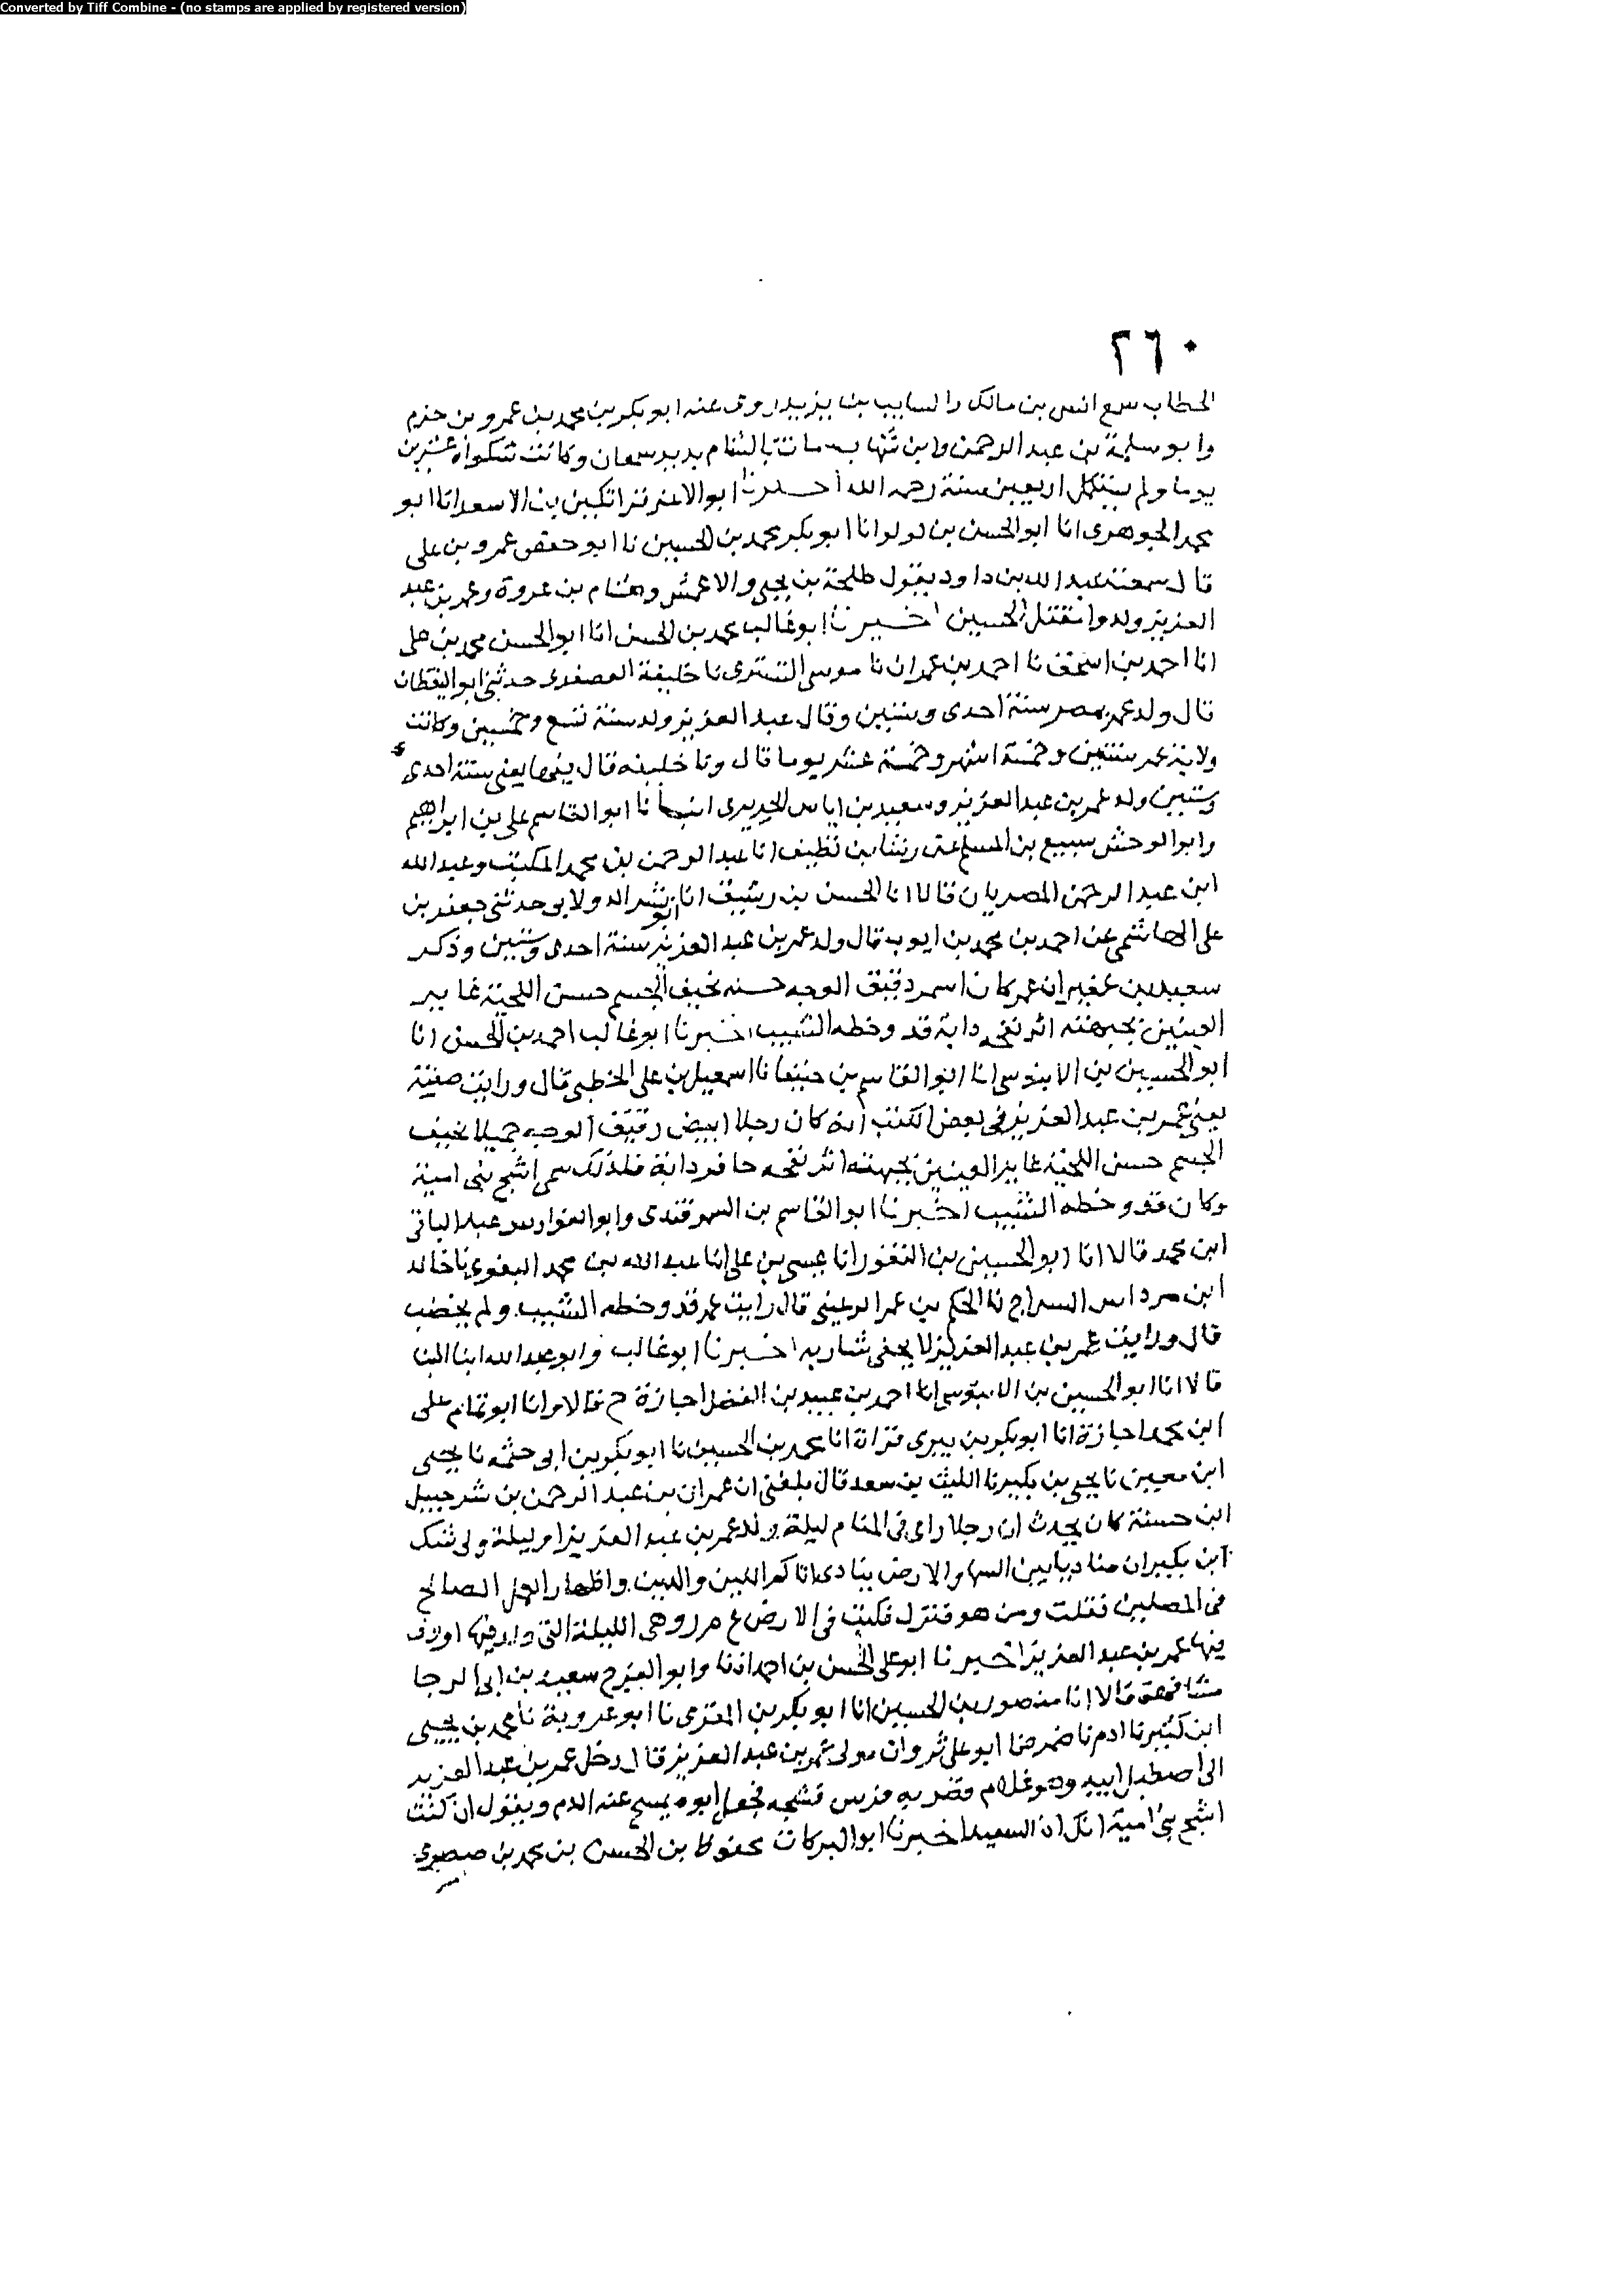 Converted by Tiff Combine - (no stamps are applied by registered version)
٢٦٠
الخطاب سمع انس بن مالك والسايب بن يزيد روى عنه ابو بكر بن محمد بن عمرو بن حزم
وابو سلمة بن عبد الرحمن وابن شهاب مات بالشام بدير سمعان وكانت شكواه عشرين
يوما ولم يستكمل اربعين سنة رحمه الله اخبرنا ابو الاعز قراتكين بن الاسعد انا ابو
محمد الجوهرى انا ابو الحسن بن لولو انا ابو بكر محمد بن الحسين نا ابو حفص عمرو بن على
قال سمعت عبد الله بن داود يقول طلحة بن يحيى والاعمش وهشام بن عروة وعمر بن عبد
العزيز ولدوا مقتل الحسين اخبرنا ابو غالب محمد بن الحسن انا ابو الحسن محمد بن على
انا احمد بن اسحق نا احمد بن عمران نا موسى التسترى نا خليفة العصفرى حدثنى ابو اليقظان
قال ولد عمر بمصر سنة احدى وستين وقال عبد العزيز ولد سنة تسع وخمسين وكانت
ولاية عمر سنتين وخمسة اشهر وخمسة عشر يوما قال ونا خليفه قال فيها يعنى سنة احدى
وستين ولد عمر بن عبد العزيز وسعيد بن اياس الجريرى انبانا ابو القاسم على بن ابراهيم
وابو الوحش سبيع بن المسلم عن رشا بن نظيف انا عبد الرحمن بن محمد المكتب وعبد الله
ابن عبد الرحمن المصريان قالا انا الحسن بن رشيق انا ابو بشر الدولابى حدثنى جعفر بن
على الهاشمى عن احمد بن محمد بن ايوب قال ولد عمر بن عبد العزيز سنة احدى وستين وذكر
سعيد بن عفير ان عمر كان اسمر دقيق الوجه حسنه نحيف الجسم حسن اللحية غاير
العينين بجبهته اثر نفحه دابة قد وخطه الشيب اخبرنا ابو غالب احمد بن الحسن انا
ابو الحسين بن الابنوسى انا ابو القاسم بن حنيفا نا اسمعيل بن على الخطبى قال ورايت صفته
يعنى عمر بن عبد العزيز فى بعض الكتب انه كان رجلا ابيض رقيق الوجه جميلا نحيف
الجسم حسن اللحية غاير العينين بجبهته اثر نفحه حافر دابة فلذلك سمى اشج بنى امية
وكان قد وخطه الشيب اخبرنا ابو القاسم بن السمرقندى وابو الفوارس عبد الباقى
ابن محمد قالا انا ابو الحسين بن النقور انا عيسى بن على انا عبد الله بن محمد البغوى نا خالد
ابن مرداس السراج نا الحكم بن عمر الرعينى قال رايت عمر قد وخطه الشيب ولم يخضب
قال ورايت عمر بن عبد العزيز لا يحفى شاربه اخبرنا ابو غالب وابو عبد الله ابنا البنا
قالا انا ابو الحسين بن الابنوسى انا احمد بن عبيد بن الفضل اجازة ح قالا وانا ابو تمام على
ابن محمد اجازة انا ابو بكر بن بيرى قراة انا محمد بن الحسين نا ابو بكر بن ابى خثمه نا يحيى
ابن معين نا يحيى بن بكير نا الليث بن سعد قال بلغنى ان عمران بن عبد الرحمن بن شرحبيل
ابن حسنة كان يحدث ان رجلا راى فى المنام ليلة ولد عمر بن عبد العزيز او ليلة ولى شك
ابن بكير ان مناديا بين السما والارض ينادى اتاكم اللين والدين واظهار العمل الصالح
فى المصلين فقلت ومن هو فنزل فكتب فى الارض ع م ر وهى الليلة التى ولد فيها او ولى
فيها عمر بن عبد العزيز اخبرنا ابو على الحسن بن احمد اذنا وابو الفرج سعيد بن ابى الرجا
مشافهة قالا انا منصور بن الحسين انا ابو بكر بن المقرى نا ابو عروبة نا محمد بن يحيى
ابن كثير نا ادم نا ضمرة نا ابو على ثروان مولى عمر بن عبد العزيز قال دخل عمر بن عبد العزيز
الى اصطبل ابيه وهو غلام فضربه فرس فشجه فجعل ابوه يمسح عنه الدم ويقول ان كنت
اشج بنى امية انك اذا لسعيد اخبرنا ابو البركات محفوظ بن الحسن بن محمد بن صصرى